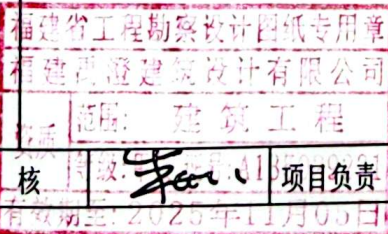 福建省工程勘察设计图纸专用章
福建禹澄建筑设计有限公司
范围: 建筑工程
资质
核 项目负责
有效期至:2025年11月05日